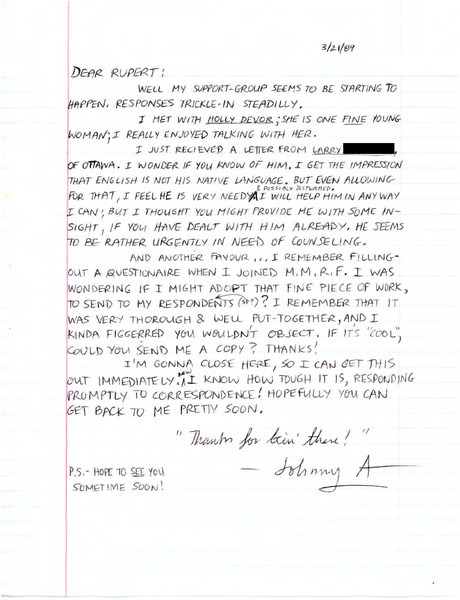 3/21/89
DEAR RUPERT:
WELL MY SUPPORT-GROUP SEEMS TO BE STARTING TO
HAPPEN. RESPONSES TRICKLE-IN STEADILLY.
I MET WITH HOLLY DEVOR; SHE IS ONE FINE YOUNG
WOMAN; I REALLY ENJOYED TALKING WITH HER.
I JUST RECIEVED A LETTER FROM LARRY
OF OTTAWA. I WONDER IF YOU KNOW OF HIM. I GET THE IMPRESSION
THAT ENGLISH IS NOT HIS NATIVE LANGUAGE. BUT EVEN ALLOWING
& POSSIBLY DISTURBED.
FOR THAT, I FEEL HE IS VERY NEEDY I WILL HELP HIM IN ANYWAY
I CAN; BUT I THOUGHT YOU MIGHT PROVIDE ME WITH SOME IN-
SIGHT, IF YOU HAVE DEALT WITH HIM ALREADY. HE SEEMS
TO BE RATHER URGENTLY IN NEED OF COUNSELING.
AND ANOTHER FAVOUR... I REMEMBER FILLING-
OUT A QUESTIONAIRE WHEN I JOINED M.M.R.F. I WAS
WONDERING IF I MIGHT ADOPT THAT FINE PIECE OF WORK,
TO SEND TO MY RESPONDENTS (SP?)? I REMEMBER THAT IT
WAS VERY THOROUGH & WELL PUT-TOGETHER, AND I
KINDA FIGGERRED YOU WOULDN'T OBJECT. IF IT'S "COOL",
COULD YOU SEND ME A COPY? THANKS!
I'M GONNA CLOSE HERE, SO I CAN GET THIS
OUT IMMEDIATELY. NOW I KNOW HOW TOUGH IT IS, RESPONDING
PROMPTLY TO CORRESPONDENCE! HOPEFULLY YOU CAN
GET BACK TO ME PRETTY SOON.
"Thanks for bein' there!"
— Johnny A
P.S.- HOPE TO SEE YOU
SOMETIME SOON!